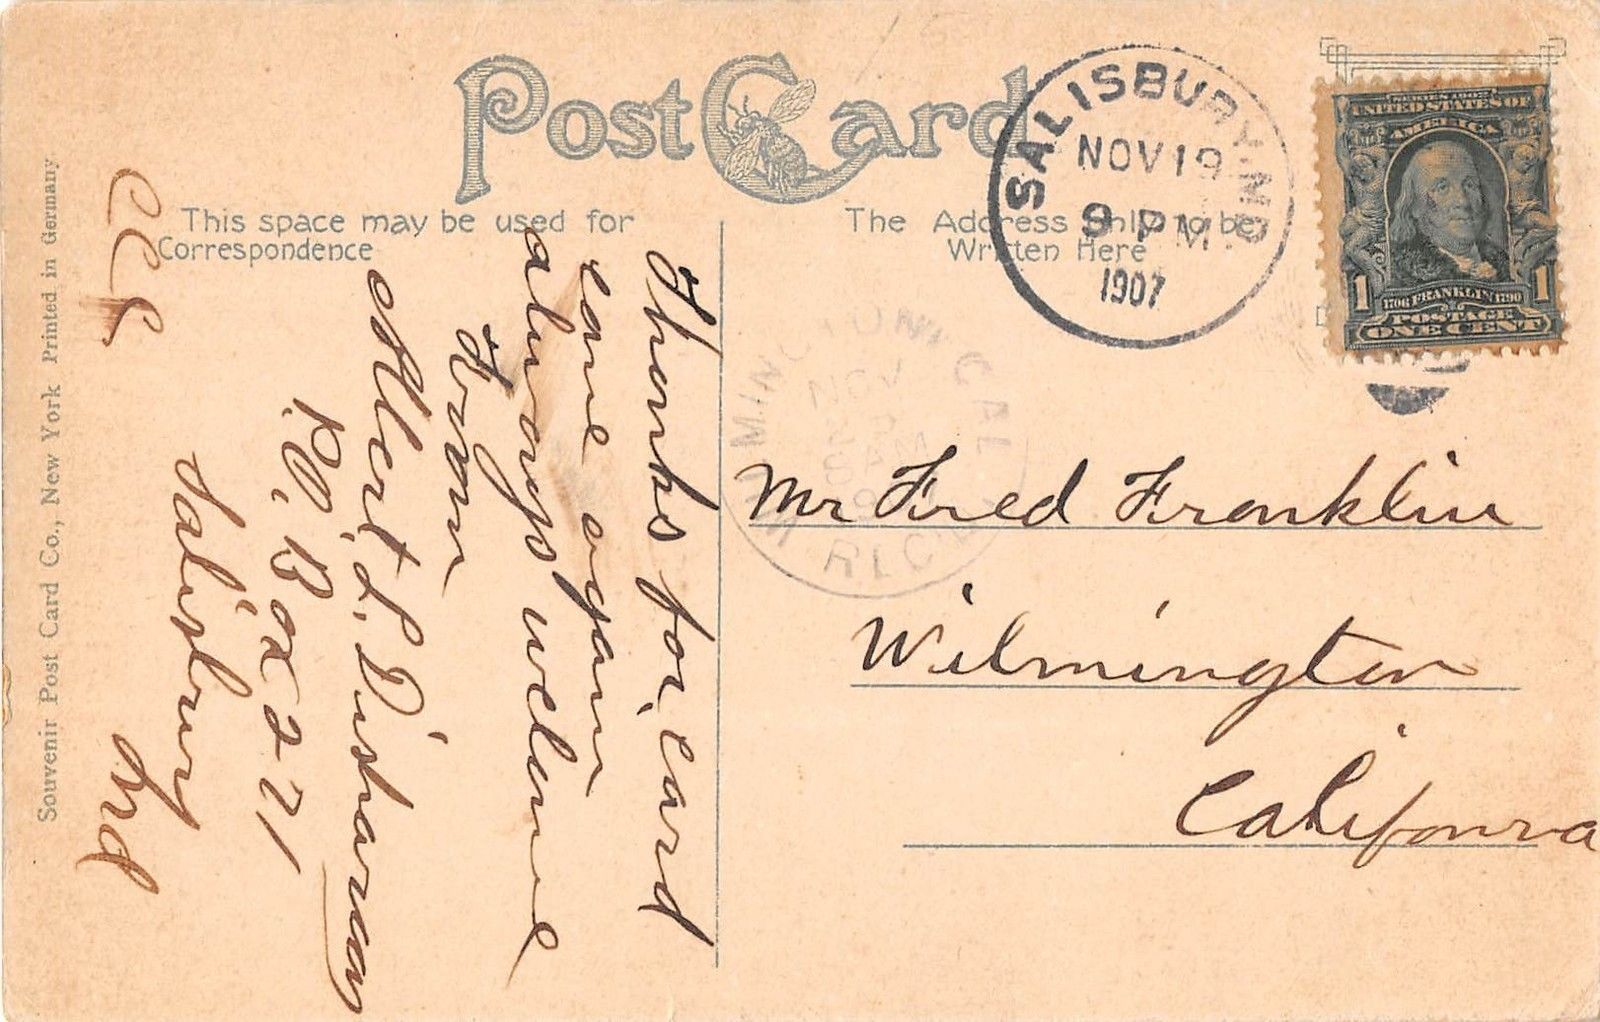 Post Card
This space may be used for
Correspondence
The Address Only to be
Written Here
SALISBURY. MD.
NOV 19
9 PM.
1907
SERIES 1902
UNITED STATES OF
AMERICA
1 1
1706 FRANKLIN 1790
POSTAGE
ONE CENT
WILMINGTON, CAL
NOV
AM
REC'D
Mr Fred Franklin
Wilmington
California
Thanks for, Card
Come again
always welcome
From
Albert L. Disharoon
P.O. Box 271
Salisbury
Md
Souvenir Post Card Co., New York Printed in Germany